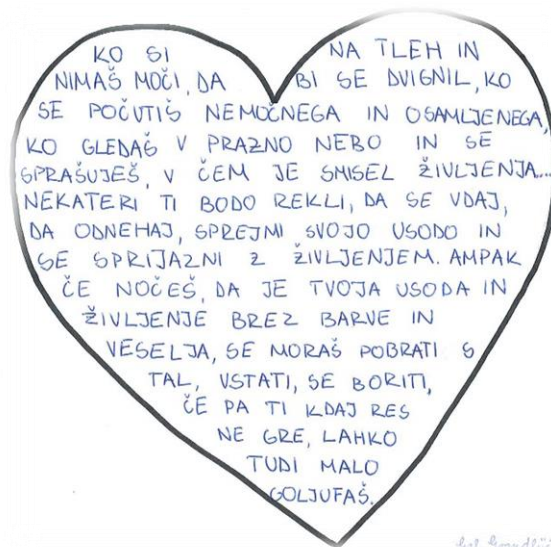 KO SI NA TLEH IN
NIMAŠ MOČI, DA BI SE DVIGNIL, KO
SE POČUTIŠ NEMOČNEGA IN OSAMLJENEGA,
KO GLEDAŠ V PRAZNO NEBO IN SE
SPRAŠUJEŠ, V ČEM JE SMISEL ŽIVLJENJA...
NEKATERI TI BODO REKLI, DA SE VDAJ,
DA ODNEHAJ, SPREJMI SVOJO USODO IN
SE SPRIJAZNI Z ŽIVLJENJEM. AMPAK
ČE NOČEŠ, DA JE TVOJA USODA IN
ŽIVLJENJE BREZ BARVE IN
VESELJA, SE MORAŠ POBRATI S
TAL, VSTATI, SE BORITI,
ČE PA TI KDAJ RES
NE GRE, LAHKO
TUDI MALO
GOLJUFAŠ.